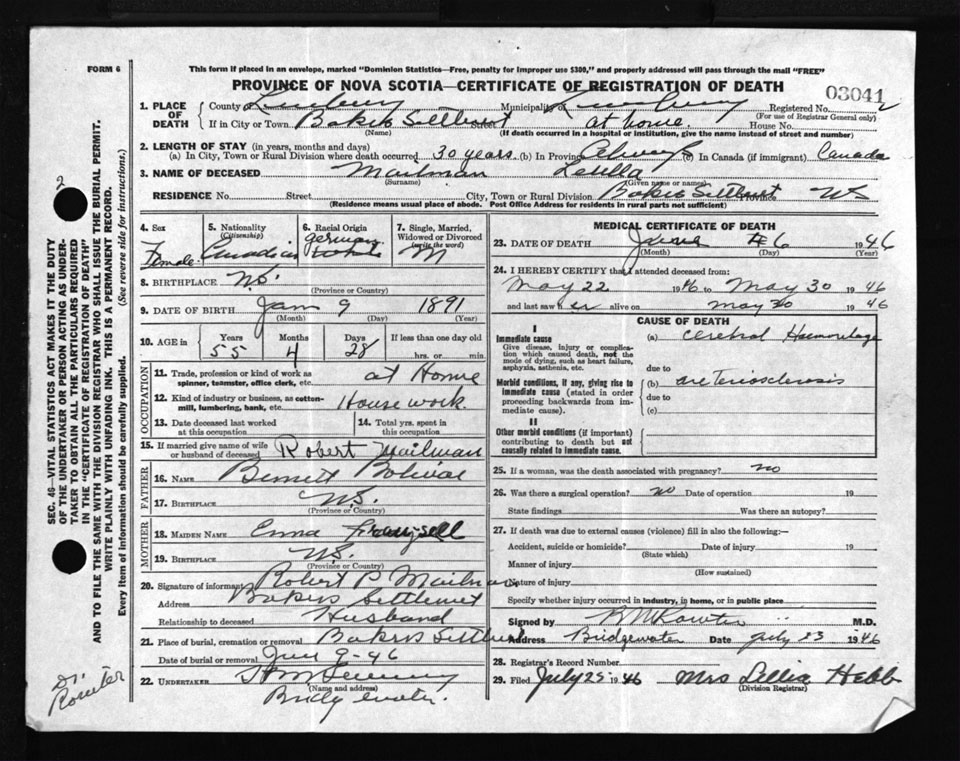 FORM 6
This form if placed in an envelope, marked "Dominion Statistics—Free, penalty for improper use $300," and properly addressed will pass through the mail "FREE"
PROVINCE OF NOVA SCOTIA—CERTIFICATE OF REGISTRATION OF DEATH
03041
2
1. PLACE OF DEATH
County of Lunenburg Municipality of Lunenburg Registered No.
(For use of Registrar General only)
If in City or Town Bakers Settlement Street at home. House No.
(Name) (If death occurred in a hospital or institution, give the name instead of street and number)
2. LENGTH OF STAY (in years, months and days)
(a) In City, Town or Rural Division where death occurred 30 years. (b) In Province Always (c) In Canada (if immigrant) Canada
3. NAME OF DECEASED Mailman Letilla
(Surname) (Given name or names)
RESIDENCE No. Street City, Town or Rural Division Bakers Settlement Province NS
(Residence means usual place of abode. Post Office Address for residents in rural parts not sufficient)
4. Sex Female.
5. Nationality (Citizenship) Canadian
6. Racial Origin German White
7. Single, Married, Widowed or Divorced (write the word) M
8. BIRTHPLACE NS.
(Province or Country)
9. DATE OF BIRTH Jan 9 1891
(Month) (Day) (Year)
10. AGE in Years Months Days If less than one day old
55 4 28 hrs. or min.
OCCUPATION
11. Trade, profession or kind of work as spinner, teamster, office clerk, etc. at Home
12. Kind of industry or business, as cotton-mill, lumbering, bank, etc. House work.
13. Date deceased last worked at this occupation
14. Total yrs. spent in this occupation
15. If married give name of wife or husband of deceased Robert Mailman
FATHER
16. NAME Bennett Bolivar
17. BIRTHPLACE NS.
(Province or Country)
MOTHER
18. MAIDEN NAME Emma
19. BIRTHPLACE NS.
(Province or Country)
20. Signature of informant Robert P Mailman
Address Bakers Settlement
Relationship to deceased Husband
21. Place of burial, cremation or removal Bakers Settlement
Date of burial or removal Jun 9-46
22. UNDERTAKER
(Name and address)
Bridgewater.
MEDICAL CERTIFICATE OF DEATH
23. DATE OF DEATH June 6 1946
(Month) (Day) (Year)
24. I HEREBY CERTIFY that I attended deceased from:
May 22 1946 to May 30 1946
and last saw her alive on May 30 1946
CAUSE OF DEATH
I
Immediate cause
Give disease, injury or complication which caused death, not the mode of dying, such as heart failure, asphyxia, asthenia, etc.
(a) Cerebral Hemorrhage
due to
Morbid conditions, if any, giving rise to immediate cause (stated in order proceeding backwards from immediate cause).
(b) arteriosclerosis
due to
(c)
II
Other morbid conditions (if important) contributing to death but not causally related to immediate cause.
25. If a woman, was the death associated with pregnancy? no
26. Was there a surgical operation? no Date of operation 19
State findings Was there an autopsy?
27. If death was due to external causes (violence) fill in also the following:—
Accident, suicide or homicide? Date of injury 19
(State which)
Manner of injury
(How sustained)
Nature of injury
Specify whether injury occurred in industry, in home, or in public place
Signed by M.D.
Address Bridgewater Date July 23 1946
28. Registrar's Record Number
29. Filed July 25 1946 Mrs Lellia Hebb
(Division Registrar)
SEC. 46—VITAL STATISTICS ACT MAKES IT THE DUTY
OF THE UNDERTAKER OR PERSON ACTING AS UNDER-
TAKER TO OBTAIN ALL THE PARTICULARS REQUIRED
IN THE "CERTIFICATE OF REGISTRATION OF DEATH"
AND TO FILE THE SAME WITH THE DIVISION REGISTRAR WHO SHALL ISSUE THE BURIAL PERMIT.
WRITE PLAINLY WITH UNFADING INK. THIS IS A PERMANENT RECORD.
Every item of information should be carefully supplied. (See reverse side for instructions.)
2
Dr.